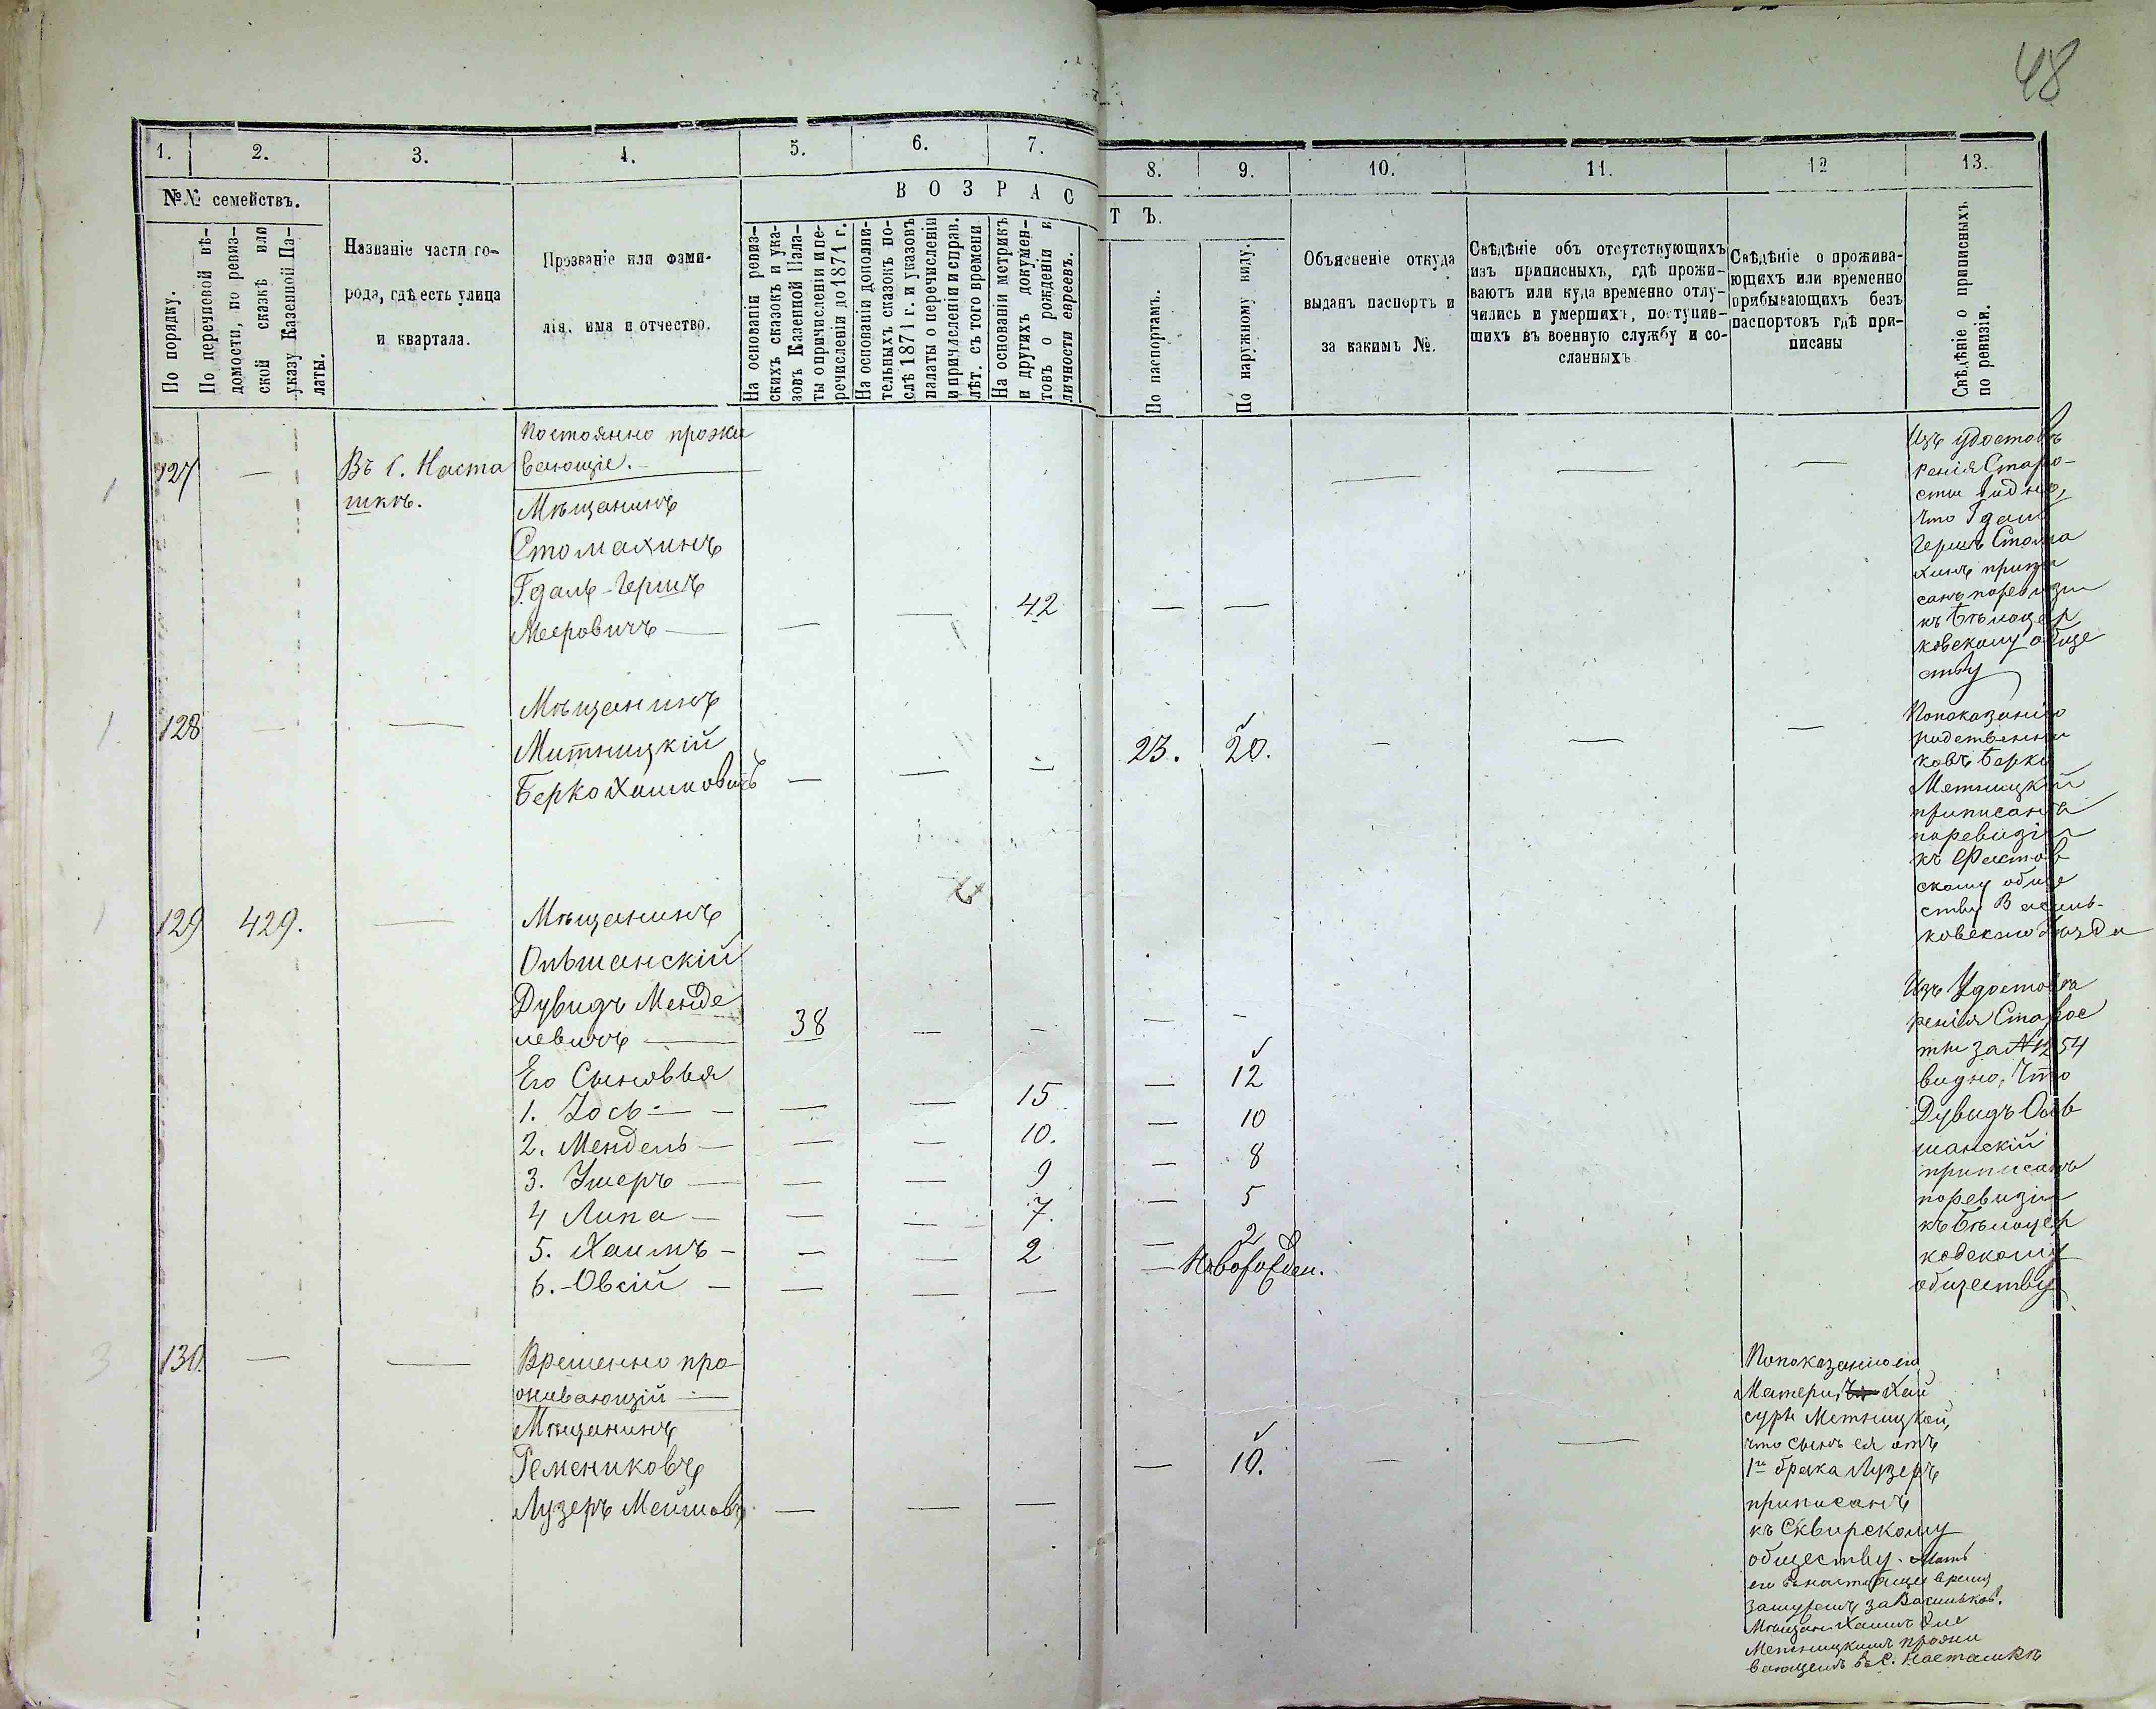 48
1. 2. 3. 4. 5. 6. 7. 8. 9. 10. 11. 12 13.
№№ семействъ.
По порядку.
По перечневой вѣ-
домости, по ревиз-
ской сказкѣ или
указу Казенной Па-
латы.
Названіе части го-
рода, гдѣ есть улица
и квартала.
Прозваніе или фами-
лія, имя и отчество.
ВОЗРАСТЪ.
На основаніи ревиз-
скихъ сказокъ и ука-
зовъ Казенной Пала-
ты о причисленіи и пе-
речисленіи до 1871 г.
На основаніи дополни-
тельныхъ сказокъ по-
слѣ 1871 г. и указовъ
палаты о перечисленіи
и причисленіи и справ.
лѣт. съ того времени
На основаніи метрикъ
и другихъ докумен-
товъ о рожденіи и
личности евреевъ.
По паспортамъ.
По наружному виду.
Объясненіе откуда
выданъ паспортъ и
за какимъ №.
Свѣдѣніе объ отсутствующихъ
изъ приписныхъ, гдѣ прожи-
ваютъ или куда временно отлу-
чились и умершихъ, поступив-
шихъ въ военную службу и со-
сланныхъ
Свѣдѣніе о прожива-
ющихъ или временно
прибывающихъ безъ
паспортовъ гдѣ при-
писаны
Свѣдѣніе о приписныхъ
по ревизіи.
1 127 — Въ С. Наста
шкѣ.
Постоянно прожи
вающіе.
Мѣщанинъ
Стомахинъ
Гдаль-Гершъ
Мееровичъ — — — 42 — —
Изъ удостовѣ
ренія Старо-
сты видно,
что Гдаль
Гершъ Стома
хинъ припи
санъ по ревизіи
къ Бѣлоцер
ковскому обще
ству
1. 128 — —
Мѣщанинъ
Митницкій
Берко Хаимовичъ — — — 23. 20. — — —
По показанію
родственни
ковъ Берко
Метницкій
приписанъ
по ревизіи
къ Фастов
скому обще
ству Василь-
ковскаго уѣзда
1 129 429. —
Мѣщанинъ
Ольшанскій
Дувидъ Менде
левичъ — 38 — — — —
Его Сыновья
1. Іось — — — 15 — 12
2. Мендель — — — 10. — 10
3. Ушеръ — — — 9 — 8
4 Липа — — — 7. — 5
5. Хаимъ — — — 2 — 2
6. Овсій — — — — — Новорожден.
Изъ Удостовѣ
ренія Старос
ты за № 1254
видно, что
Дувидъ Оль
шанскій
приписанъ
по ревизіи
къ Бѣлоцер
ковскому
обществу
3 130. — —
Временно про
живающій
Мѣщанинъ
Ремениковъ
Лузеръ Мейшовъ — — — — 10. — —
По показанію его
Матери, Хай
суры Метницкой,
что сынъ ея отъ
1го брака Лузеръ
приписанъ
къ Сквирскому
обществу. Мать
его въ настоящее время
замужемъ за Васильков.
Мѣщан. Хаимъ
Метницкимъ прожи
вающемъ въ С. Насташкѣ